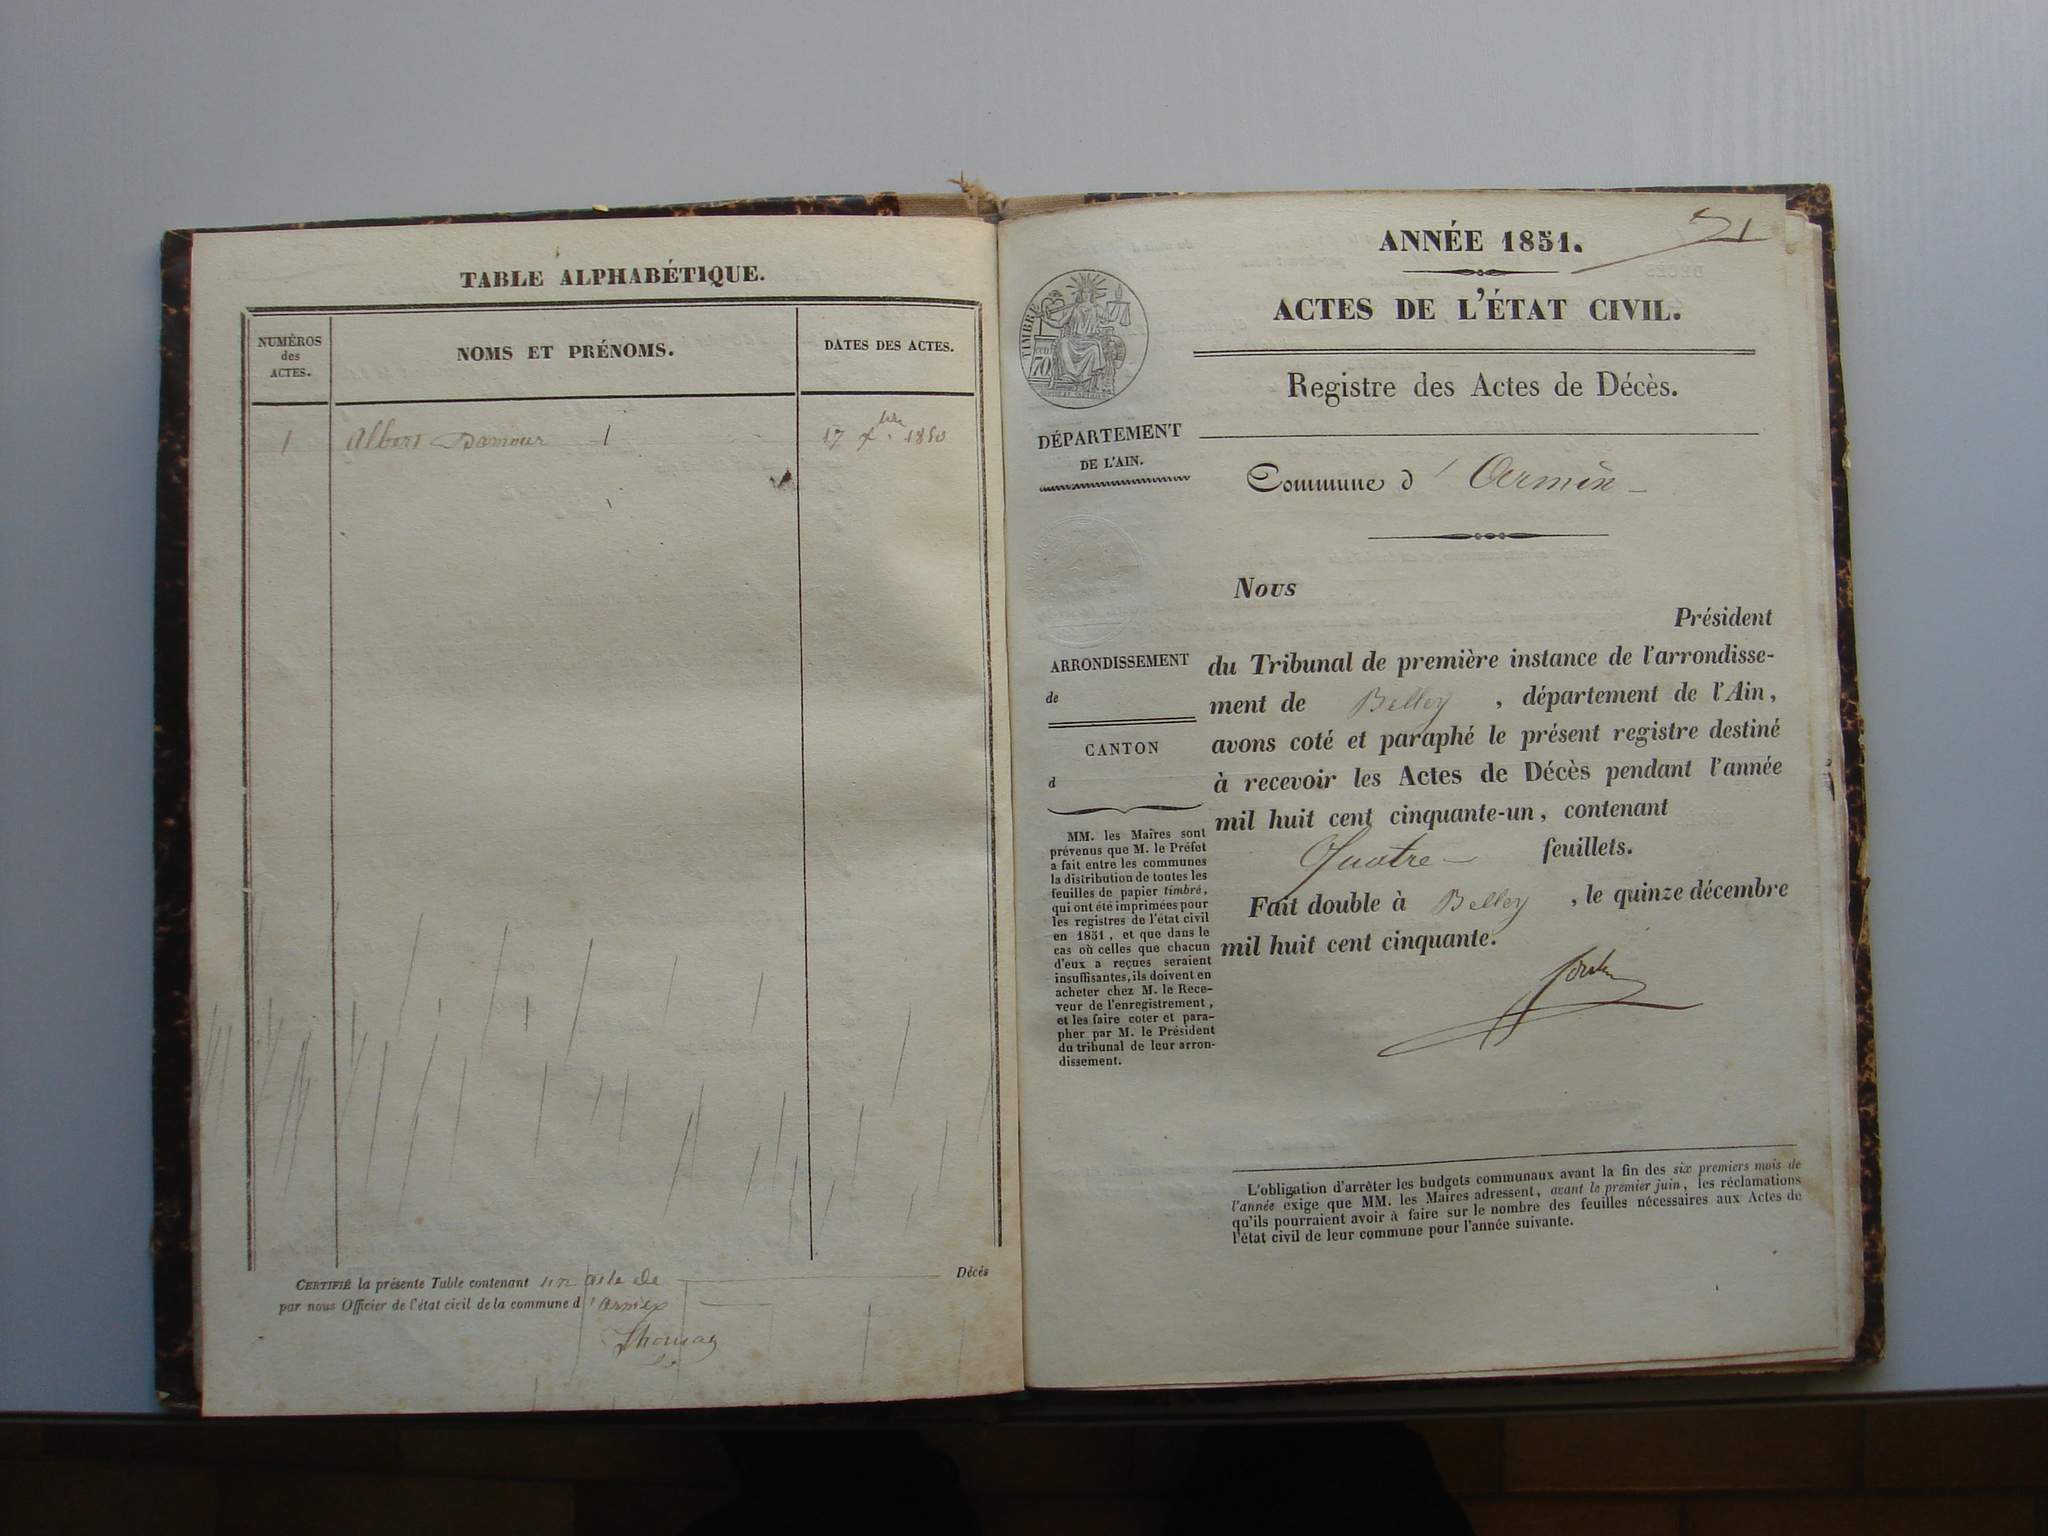 TABLE ALPHABÉTIQUE.
NUMÉROS
des
ACTES.
NOMS ET PRÉNOMS.
DATES DES ACTES.
1 Albert Damour 1 17 Xbre 1850
CERTIFIÉ la présente Table contenant un acte de Décés
par nous Officier de l'état civil de la commune d'Armix
Thomas
ANNÉE 1851.
ACTES DE L'ÉTAT CIVIL.
Registre des Actes de Décès.
TIMBRE
70
DÉPARTEMENT
DE L'AIN.
Commune d'Armix
Nous
Président
du Tribunal de première instance de l'arrondisse-
ment de Belley, département de l'Ain,
avons coté et paraphé le présent registre destiné
à recevoir les Actes de Décès pendant l'année
mil huit cent cinquante-un, contenant
Quatre feuillets.
Fait double à Belley, le quinze décembre
mil huit cent cinquante.
ARRONDISSEMENT
de
CANTON
d
MM. les Maires sont
prévenus que M. le Préfet
a fait entre les communes
la distribution de toutes les
feuilles de papier timbré,
qui ont été imprimées pour
les registres de l'état civil
en 1851, et que dans le
cas où celles que chacun
d'eux a reçues seraient
insuffisantes, ils doivent en
acheter chez M. le Rece-
veur de l'enregistrement,
et les faire coter et para-
pher par M. le Président
du tribunal de leur arron-
dissement.
L'obligation d'arrêter les budgets communaux avant la fin des six premiers mois de
l'année exige que MM. les Maires adressent, avant le premier juin, les réclamations
qu'ils pourraient avoir à faire sur le nombre des feuilles nécessaires aux Actes de
l'état civil de leur commune pour l'année suivante.